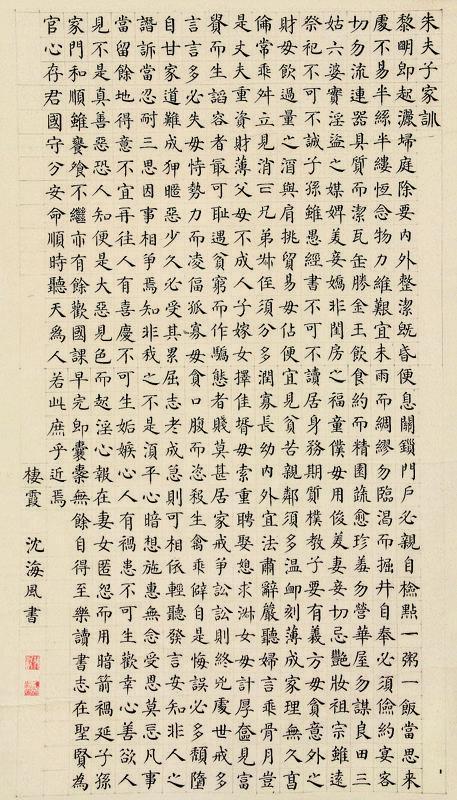 朱夫子家訓
黎明即起灑掃庭除要內外整潔既昏便息關鎖門戶必親自檢點一粥一飯當思來
處不易半絲半縷恆念物力維艱宜未雨而綢繆勿臨渴而掘井自奉必須儉約宴客
切勿流連器具質而潔瓦缶勝金玉飲食約而精園蔬愈珍羞勿營華屋勿謀良田三
姑六婆實淫盜之媒婢美妾嬌非閨房之福童僕毋用俊美妻妾切忌艷妝祖宗雖遠
祭祀不可不誠子孫雖愚經書不可不讀居身務期質樸教子要有義方毋貪意外之
財毋飲過量之酒與肩挑貿易毋佔便宜見貧苦親鄰須多溫卹刻薄成家理無久享
倫常乖舛立見消亡兄弟叔侄須分多潤寡長幼內外宜法肅辭嚴聽婦言乖骨肉豈
是丈夫重資財薄父母不成人子嫁女擇佳婿毋索重聘娶媳求淑女毋計厚奩見富
貴而生諂容者最可恥遇貧窮而作驕態者賤莫甚居家戒爭訟訟則終凶處世戒多
言言多必失毋恃勢力而凌偪孤寡毋貪口腹而恣殺生禽乖僻自是悔誤必多頹隳
自甘家道難成狎暱惡少久必受其累屈志老成急則可相依輕聽發言安知非人之
譖訴當忍耐三思因事相爭焉知非我之不是須平心暗想施惠無念受恩莫忘凡事
當留餘地得意不宜再往人有喜慶不可生妬嫉心人有禍患不可生歡幸心善欲人
見不是真善惡恐人知便是大惡見色而起淫心報在妻女匿怨而用暗箭禍延子孫
家門和順雖饔飧不繼亦有餘歡國課早完即囊橐無餘自得至樂讀書志在聖賢為
官心存君國守分安命順時聽天為人若此庶乎近焉
棲霞 沈海風書